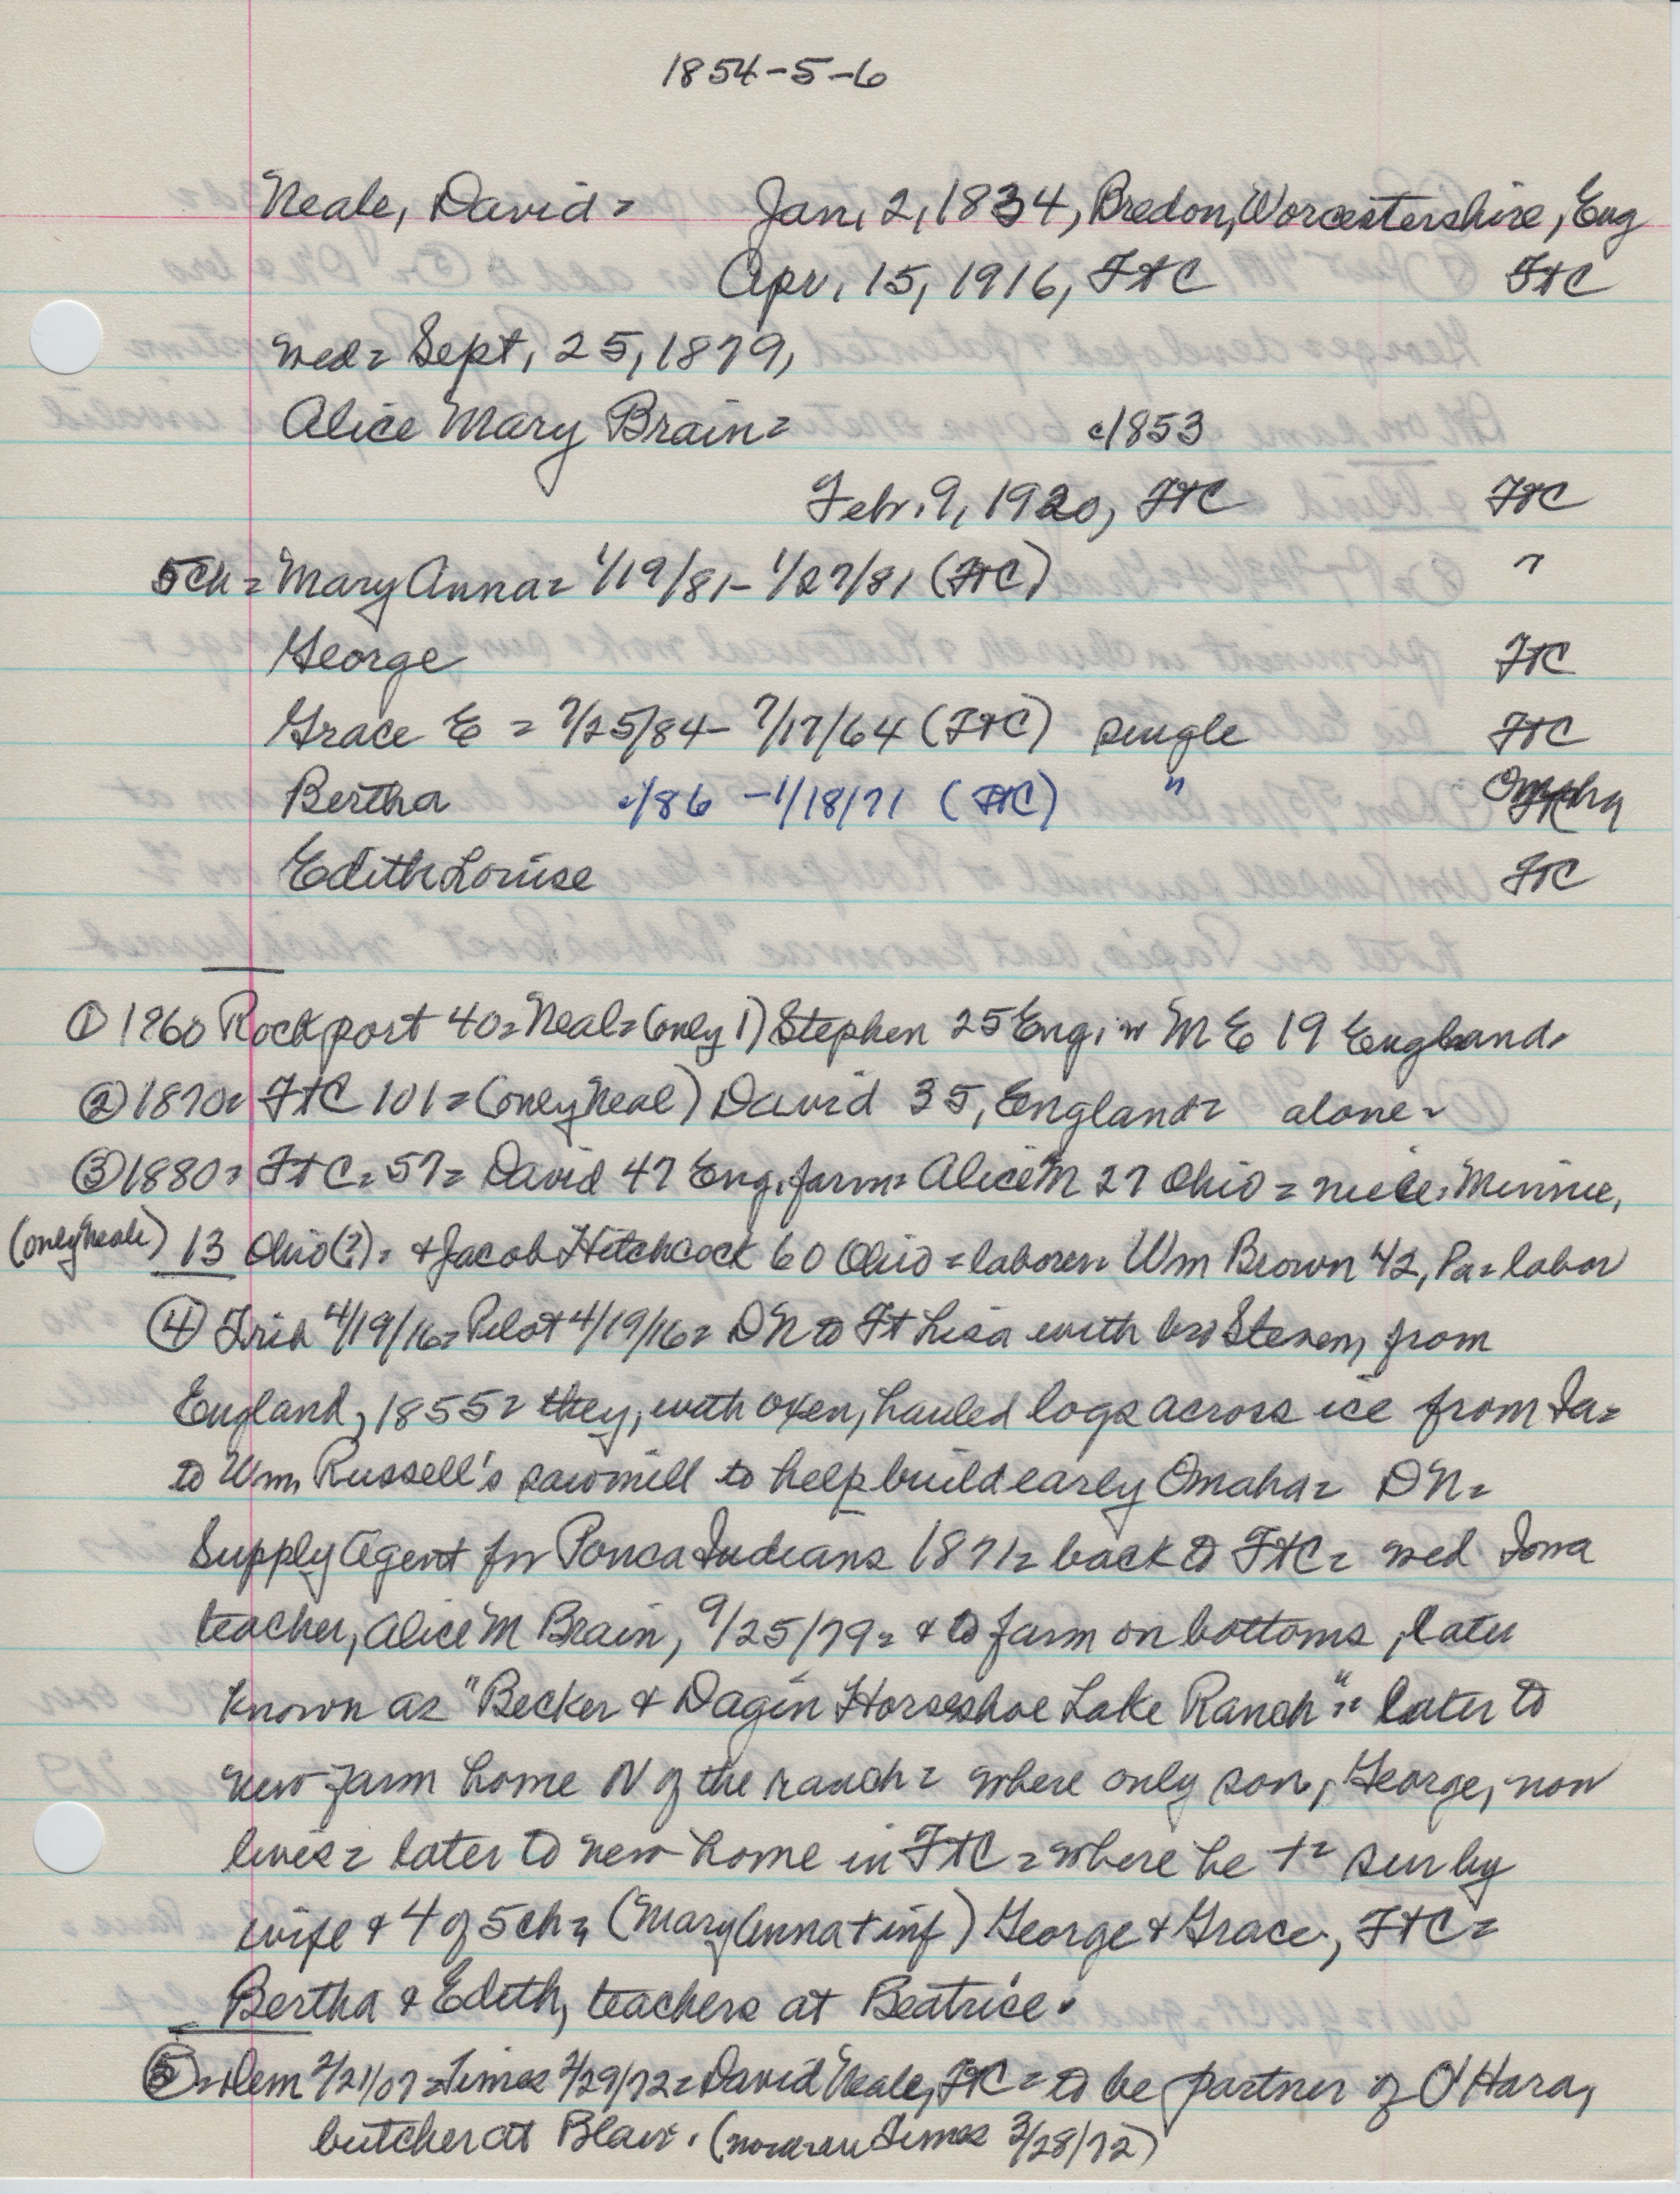 1854-5-6
Neale, David = Jan, 2, 1834, Bredon, Worcestershire, Eng
Apr, 15, 1916, FtC FtC
med = Sept, 25, 1879,
Alice Mary Brain = c1853
Feb. 9, 1920, FtC FtC
5ch = Mary Anna = 1/19/81 - 1/27/81 (FtC) "
George FtC
Grace E = 7/25/84 - 7/17/64 (FtC) single FtC
Bertha c/86 - 1/18/71 (FtC) " Omaha
Edith Louise FtC
① 1860 Rockport 40 = Neal = (only 1) Stephen 25 Eng; w M E 19 England.
② 1870 = FtC 101 = (only Neal) David 35, England = alone -
③ 1880 = FtC = 57 = David 47 Eng. farm = Alice M 27 Ohio = niece, Minnie,
(only Neale) 13 Ohio (?) = + Jacob Hitchcock 60 Ohio = laborer = Wm Brown 42, Pa = labor
④ Trib 4/19/16 = Pilot 4/19/16 = DN to Ft Lisa with bro Steven, from
England, 1855 = they, with oxen, hauled logs across ice from Ia =
to Wm, Russell's sawmill to help build early Omaha = DN =
Supply Agent for Ponca Indians 1871 = back to FtC = med Iowa
teacher, Alice M Brain, 9/25/79 = + to farm on bottoms, later
known as "Becker + Dagin Horseshoe Lake Ranch" = later to
new farm home N of the ranch = where only son, George, now
lives = later to new home in FtC = where he † = sur by
wife + 4 of 5 ch = (Mary Anna † inf) George + Grace, FtC =
Bertha + Edith, teachers at Beatrice.
⑤ = Dem 2/21/07 = Times 2/29/72 = David Neale, FtC = to be partner of O'Hara,
butcher at Blair. (Times 3/28/72)